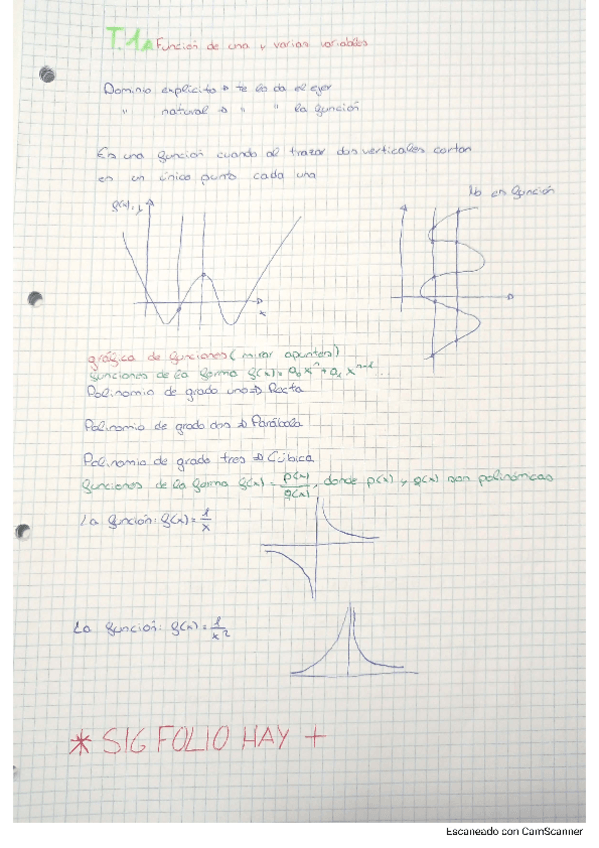 T.1A Función de una y varias variables
Dominio explícito → te lo da el ejer
" natural → " " la función
Es una función cuando al trazar dos verticales cortan
en un único punto cada una
No es función
f(x), y
x
gráfica de funciones (mirar apuntes)
funciones de la forma f(x) = a₀xⁿ + a₁xⁿ⁻¹...
Polinomio de grado uno → Recta
Polinomio de grado dos → Parábola
Polinomio de grado tres → Cúbica
funciones de la forma f(x) = p(x)/q(x), donde p(x) y q(x) son polinómicas
La función: f(x) = 1/x
La función: f(x) = 1/x²
* SIG FOLIO HAY +
Escaneado con CamScanner